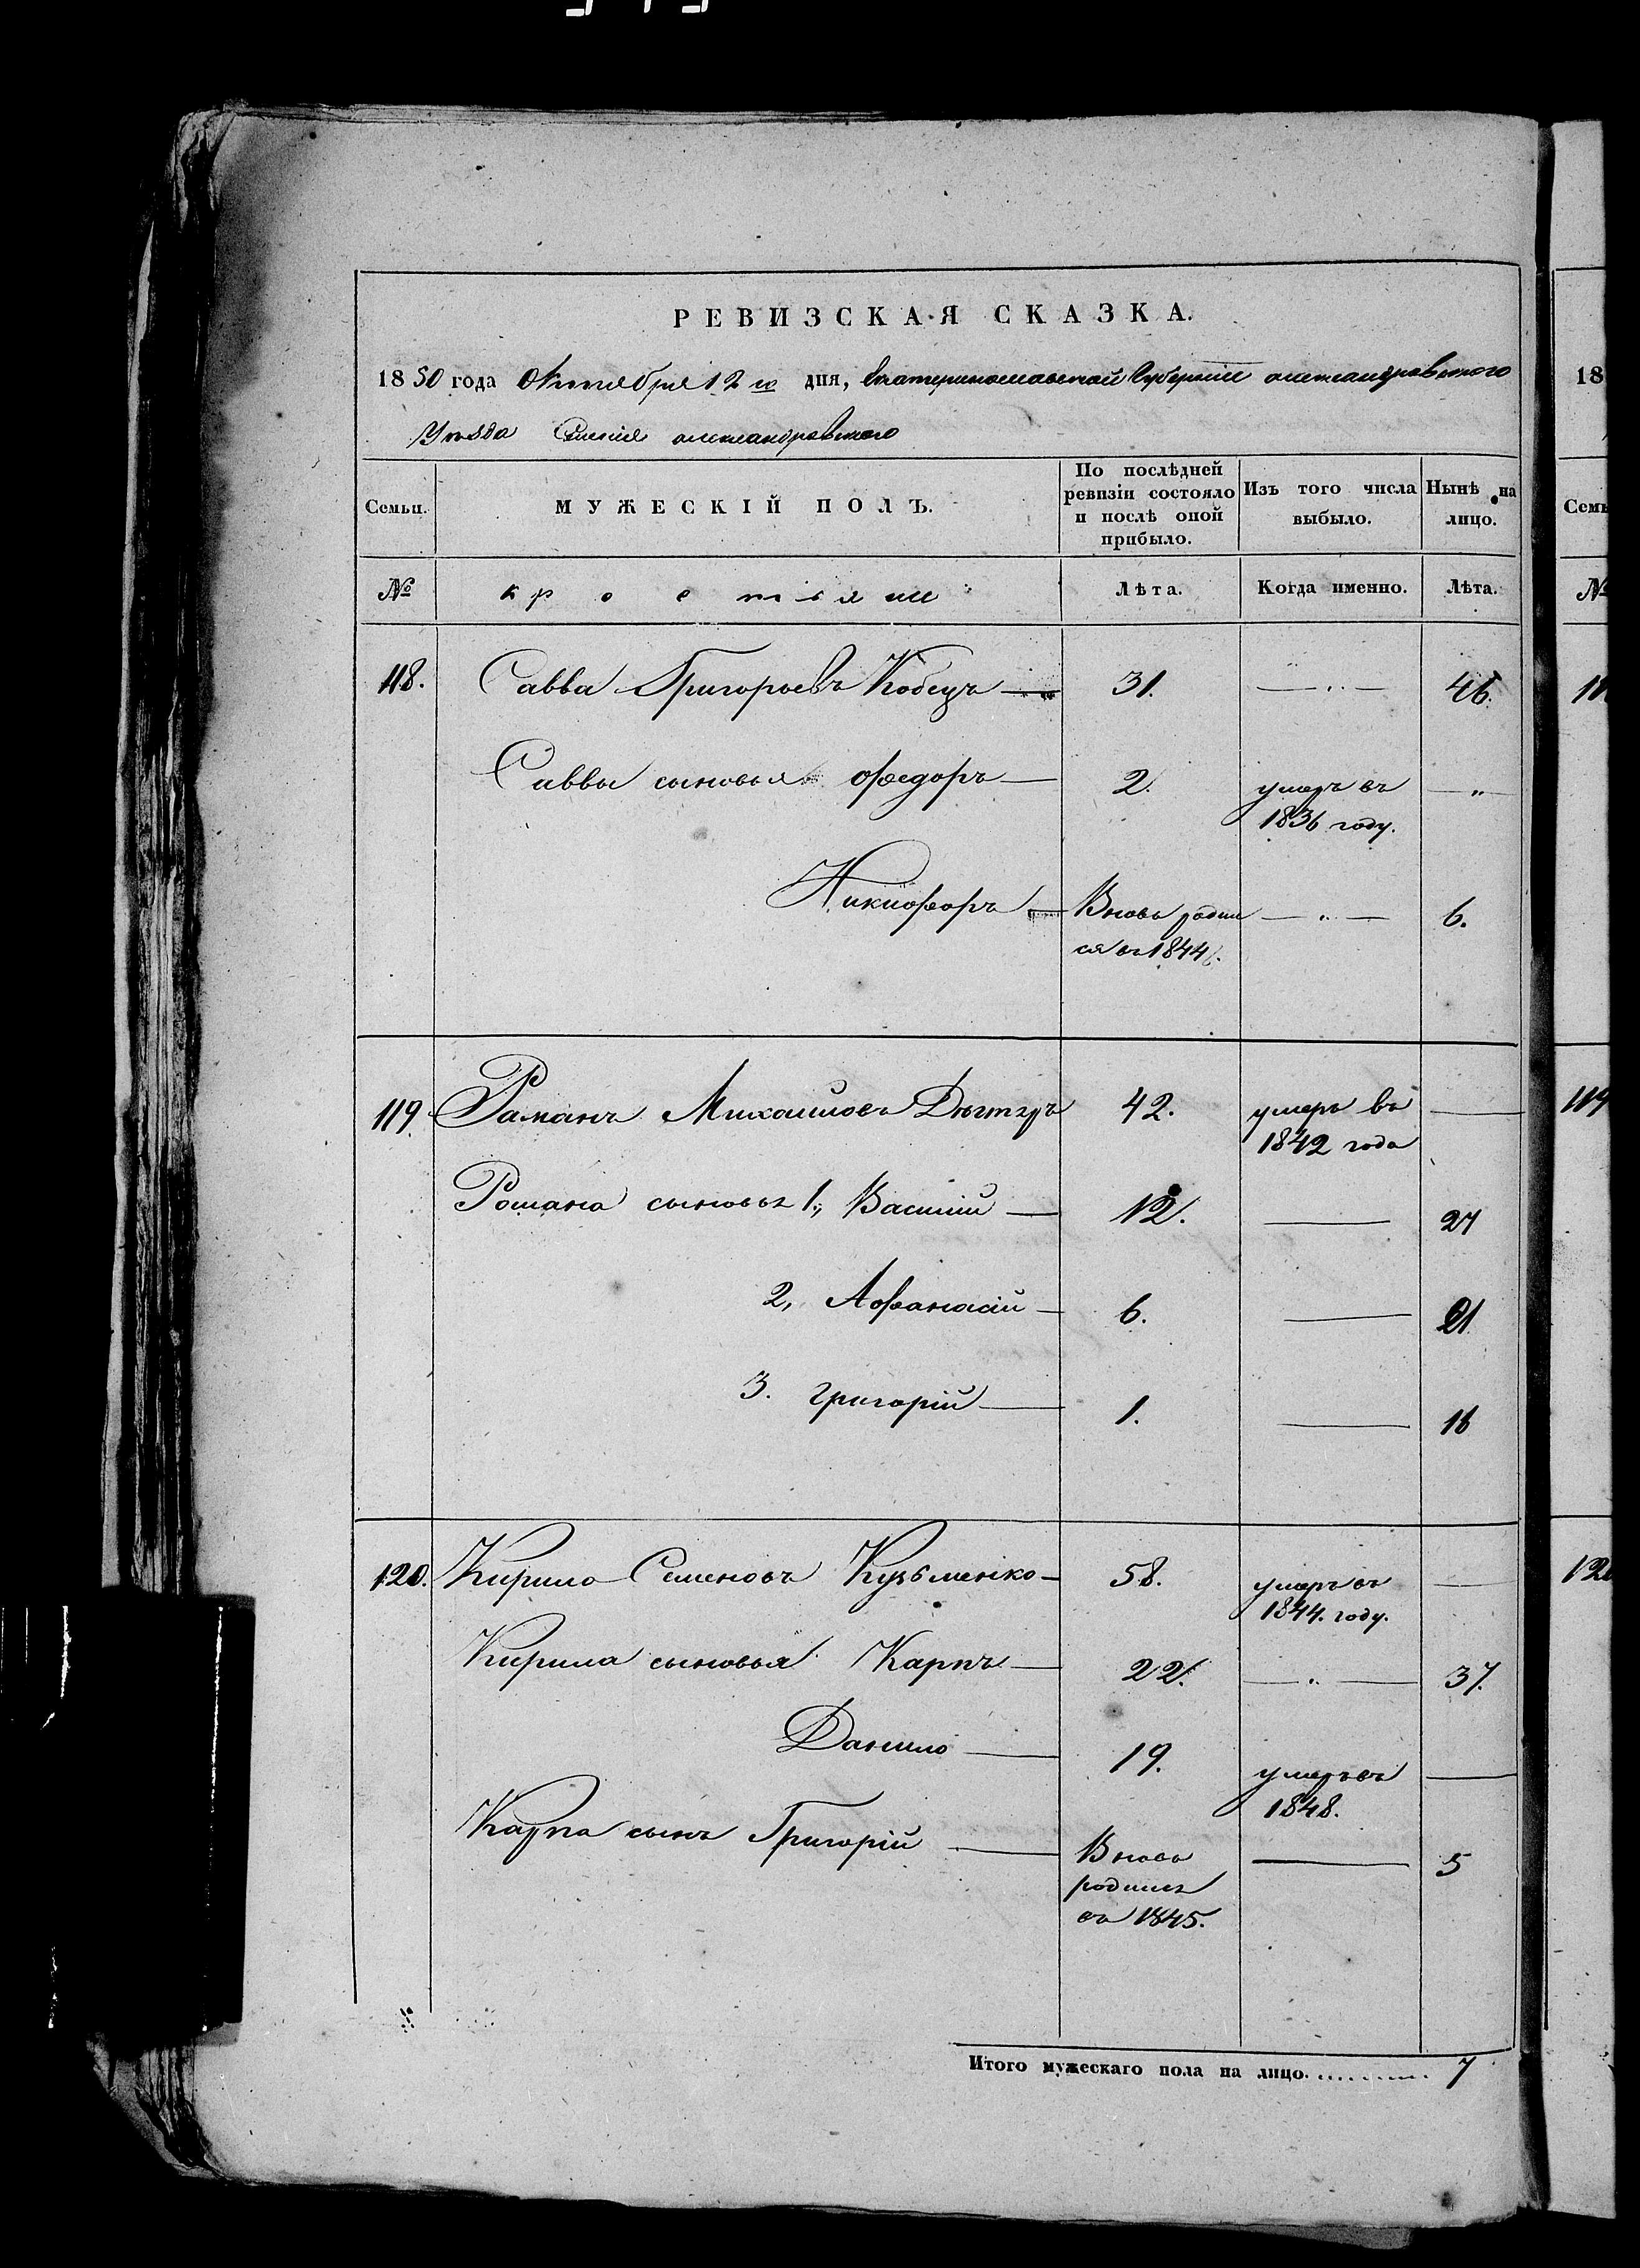 РЕВИЗСКАЯ СКАЗКА.
1850 года Октября 12 го дня, Екатеринославской Губернии александровского
Уѣзда Селенія александровского
Семьи. МУЖЕСКІЙ ПОЛЪ. По послѣдней ревизіи состояло и послѣ оной прибыло. Изъ того числа выбыло. Нынѣ на лицо.
№ Лѣта. Когда именно. Лѣта.
118. Савва Григорьевъ Кобецъ — 31. — 46.
Саввы сыновья Федоръ — 2. умеръ въ 1836 году. — „ —
Никифоръ — Вновь родил ся въ 1844 — „ — 6.
119. Раманъ Михайловъ Дѣгтяръ 42. умеръ въ 1842 года —
Романа сыновья 1., Василій — 12. — 27
2, Афанасій — 6. — 21
3. Григорій — 1. — 16
120. Кирило Семеновъ Кузьменко — 58. умеръ въ 1844. году. —
Кирила сыновья Карпъ — 22. — „ — 37.
Данило — 19. умеръ въ 1848. —
Карпа сынъ Григорій — Вновь родился въ 1845. — 5
Итого мужескаго пола на лицо. 7
18
Семь
№
11
119
120